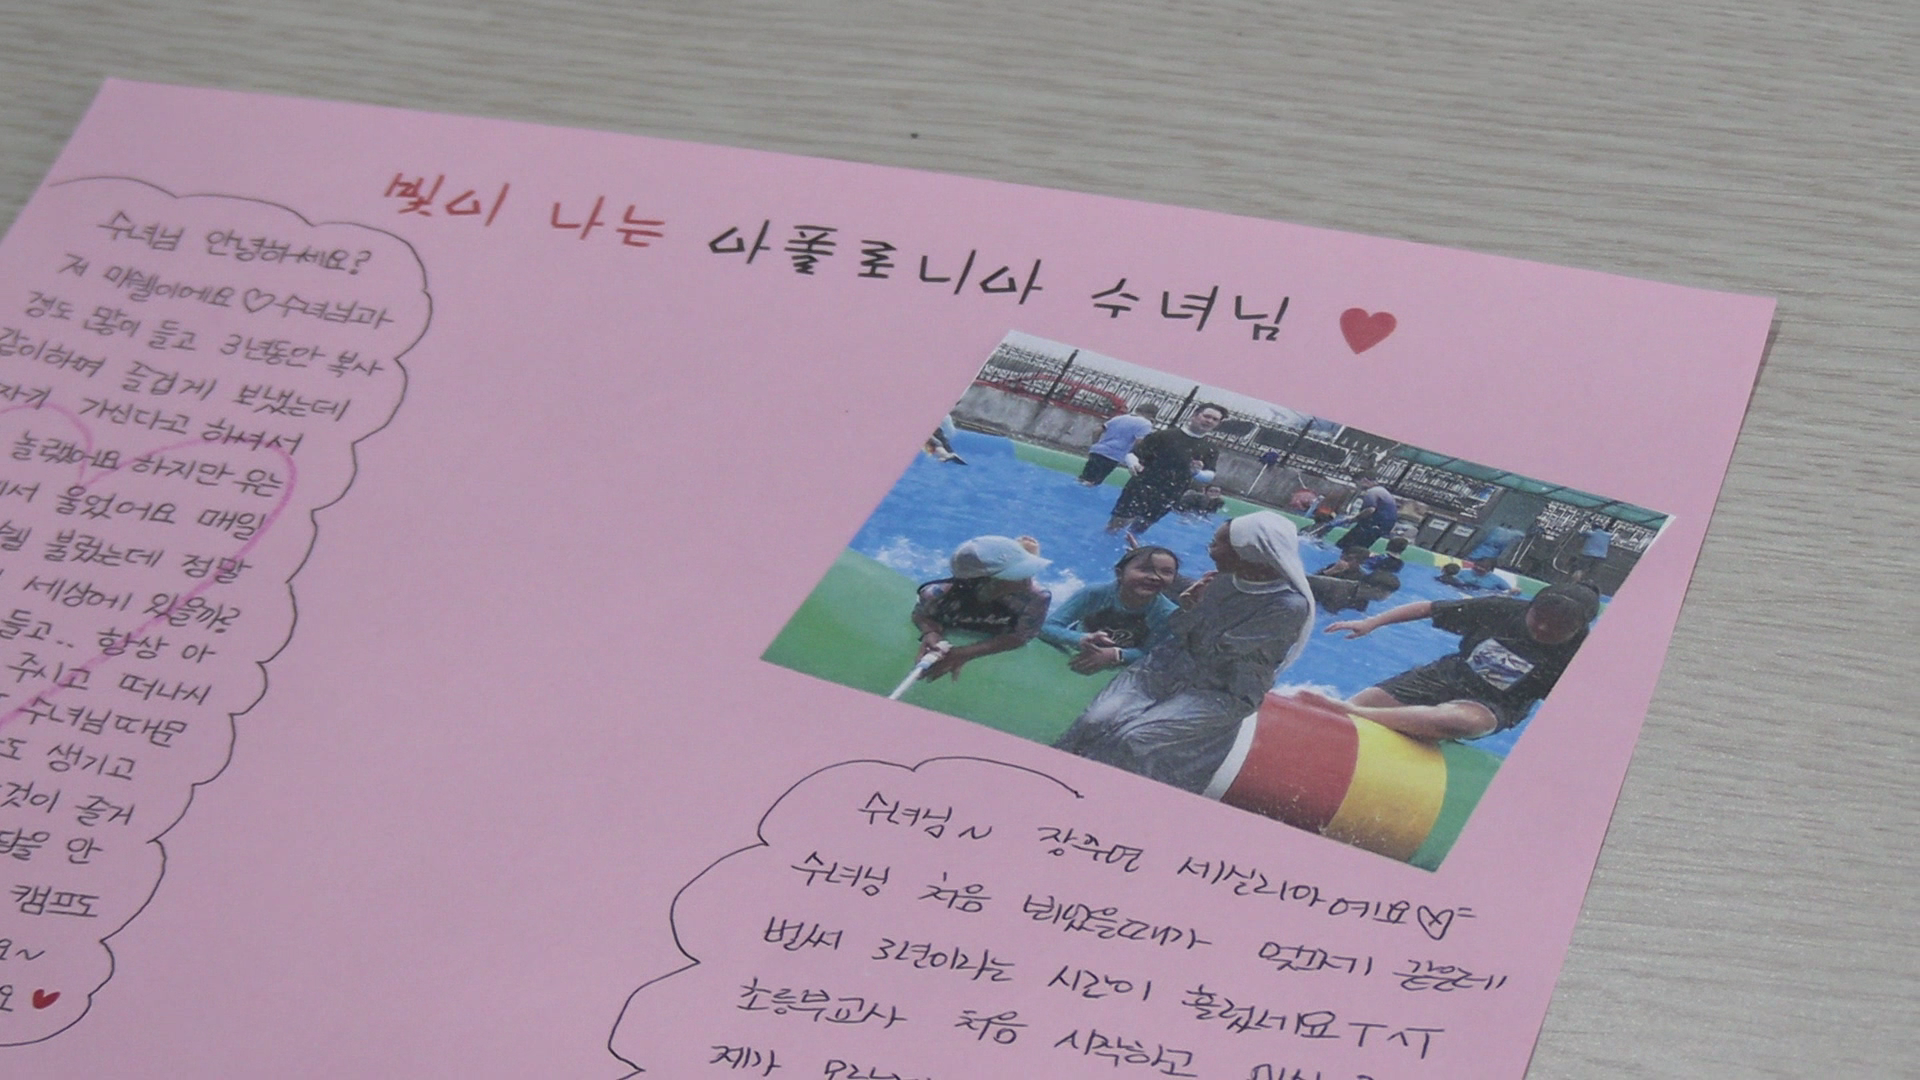 빛이 나는 아폴로니아 수녀님 ♥
수녀님 안녕하세요?
저 미쉘이에요 ♡ 수녀님과
정도 많이 들고 3년동안 복사
같이하며 즐겁게 보냈는데
가신다고 하셔서
놀랬어요 하지만 우는
울었어요 매일
불렀는데 정말
세상에 있을까?
들고.. 항상 아
주시고 떠나시
수녀님때문
도 생기고
것이 즐거
안
캠프도
요~
요 ♥
수녀님~ 장주연 세실리아에요
수녀님 처음 뵈었을때가 엊그제 같은데
벌써 3년이라는 시간이 흘렀네요 ㅜㅅㅜ
초등부교사 처음 시작하고
제가